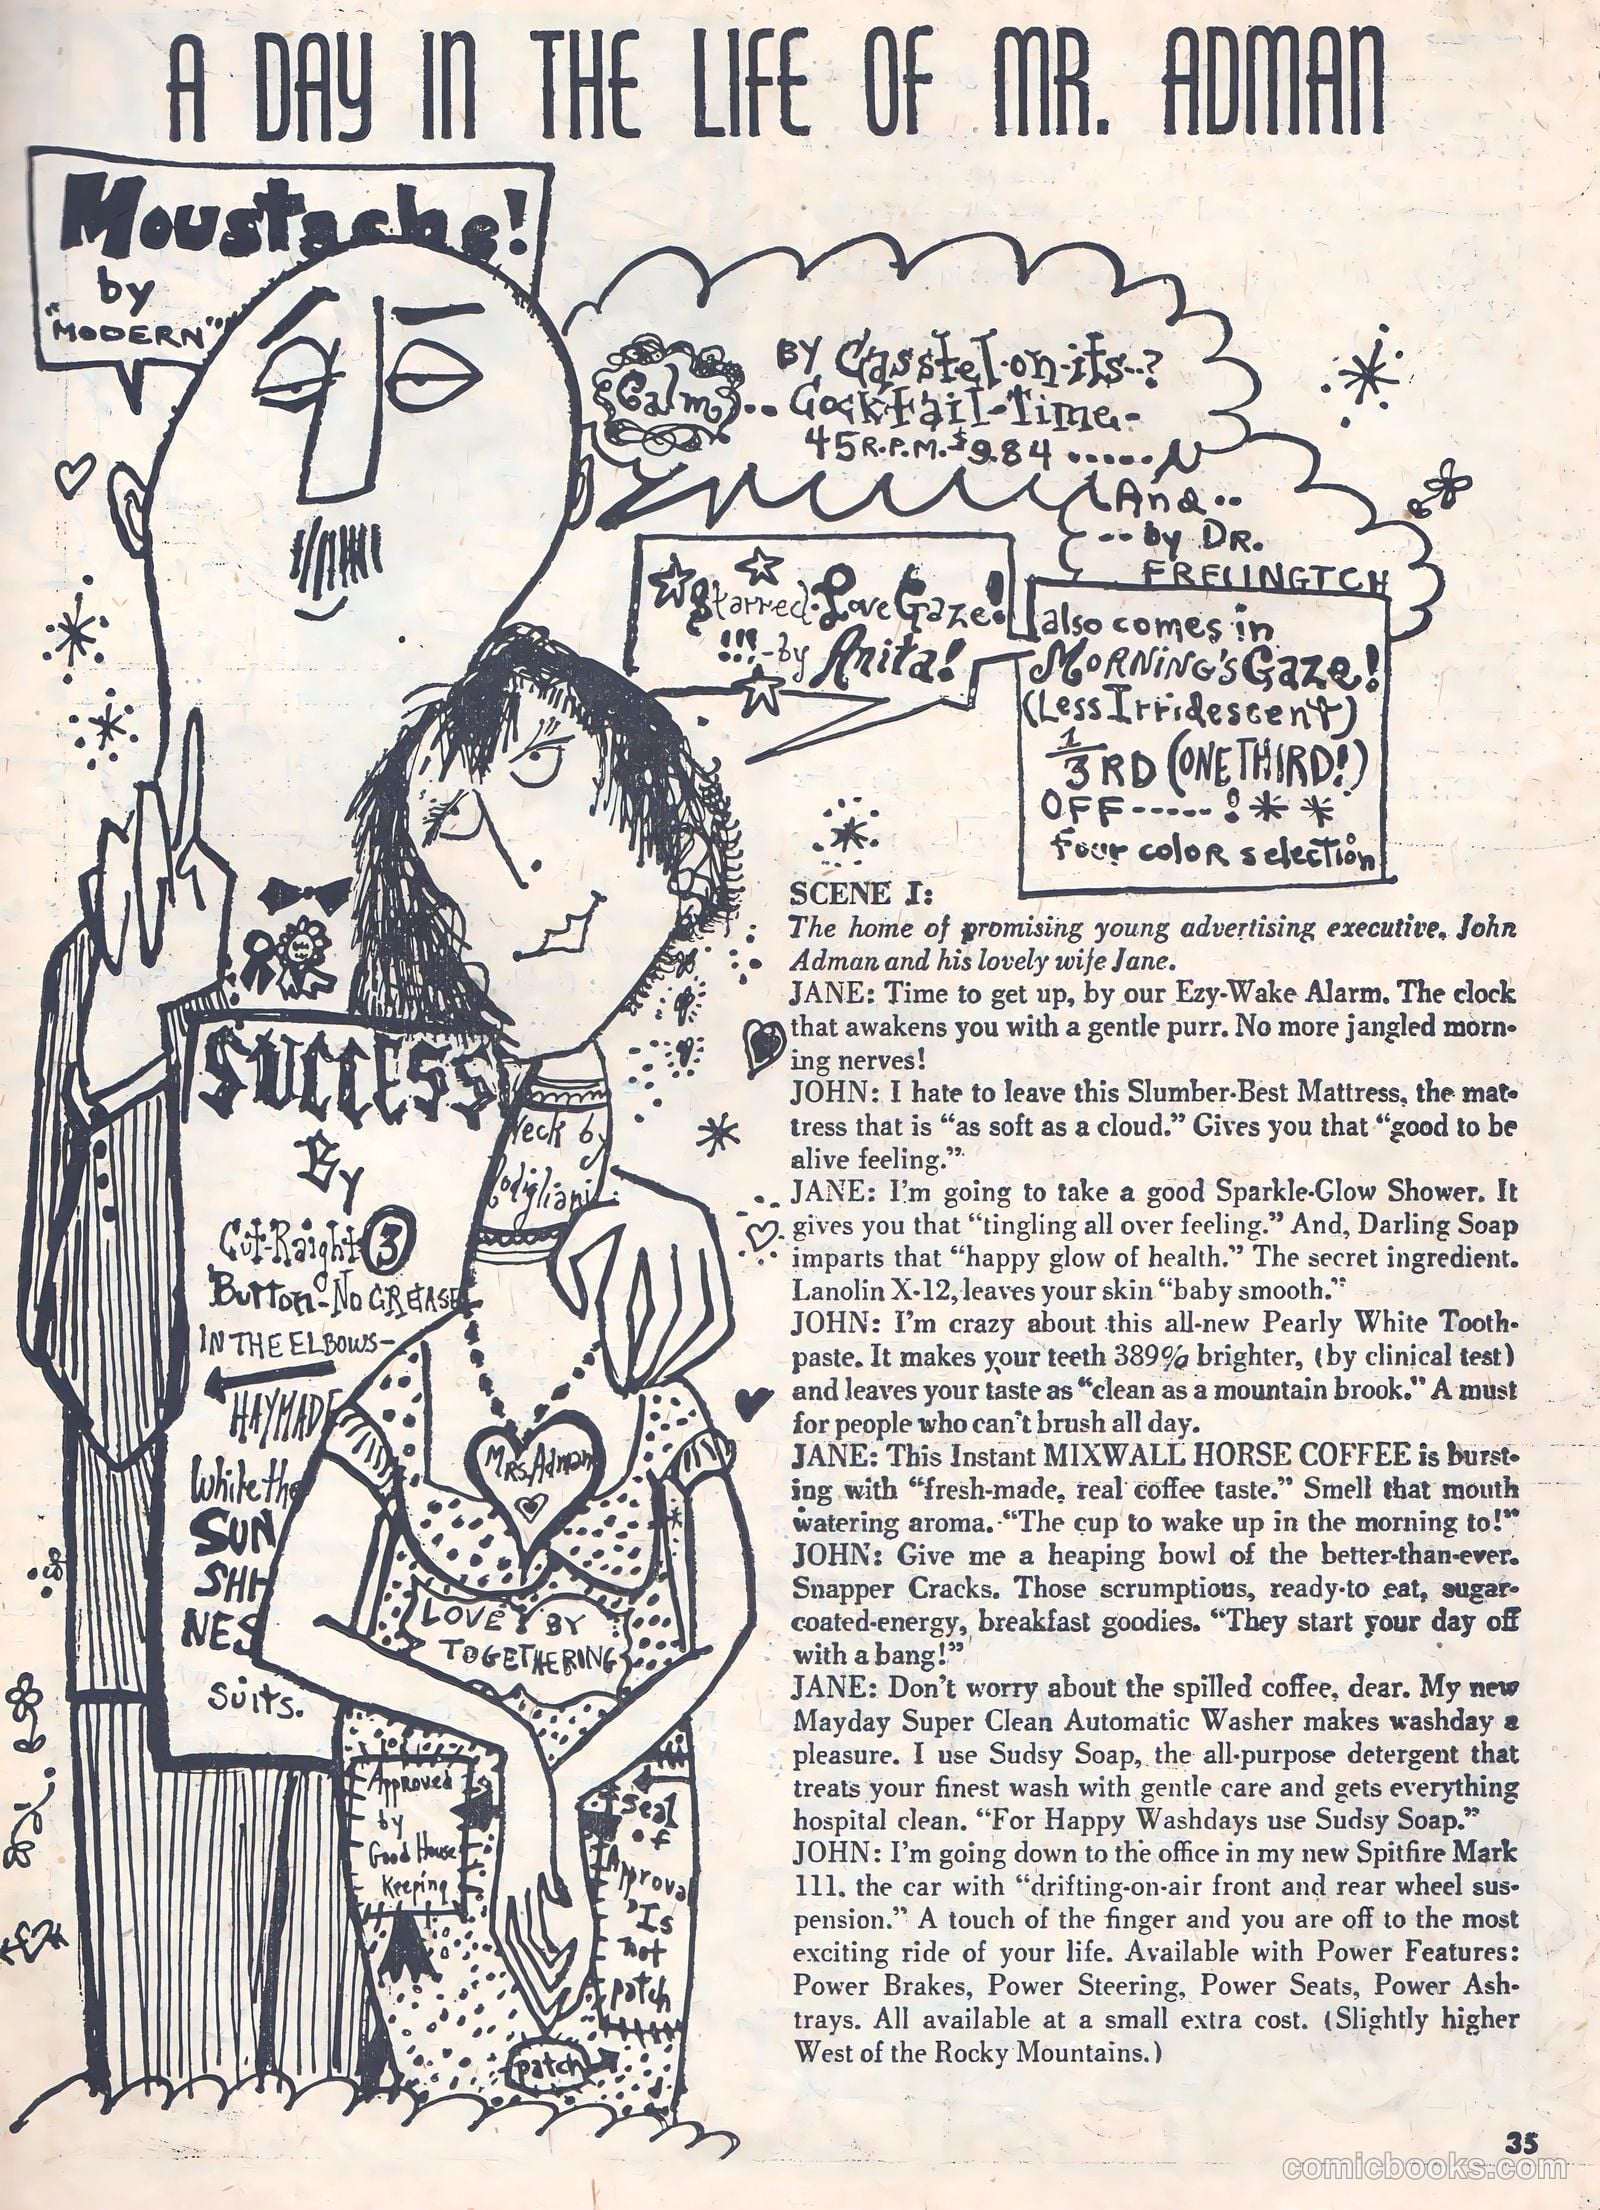 A DAY IN THE LIFE OF MR. ADMAN
Moustache!
by
"MODERN"
Calm... BY Casstel-on-its..?
Cocktail-Time.-
45 R.P.M. $9.84 .....
And..
..by DR.
FRELINGTCH
Starred-Love Gaze!
!!!-by Anita!
also comes in
MORNING'S Gaze!
(Less Irridescent)
1/3 RD (ONE THIRD!)
OFF-----! * *
four color selection
SUCCESS
By
Cut-Raight 3
Button-No GREASE
IN THE ELBOWS-
HAYMADE
While the
SUN
SHI
NES
suits.
Neck by
Modigliani
Mrs. Adman
LOVE BY
TOGETHERING
Approved
by
Good House
Keeping
Seal
of
Approval
'Is
not
patch
patch
SCENE I:
The home of promising young advertising executive, John
Adman and his lovely wife Jane.
JANE: Time to get up, by our Ezy-Wake Alarm. The clock
that awakens you with a gentle purr. No more jangled morn-
ing nerves!
JOHN: I hate to leave this Slumber-Best Mattress, the mat-
tress that is "as soft as a cloud." Gives you that "good to be
alive feeling."
JANE: I'm going to take a good Sparkle-Glow Shower. It
gives you that "tingling all over feeling." And, Darling Soap
imparts that "happy glow of health." The secret ingredient.
Lanolin X-12, leaves your skin "baby smooth."
JOHN: I'm crazy about this all-new Pearly White Tooth-
paste. It makes your teeth 389% brighter, (by clinical test)
and leaves your taste as "clean as a mountain brook." A must
for people who can't brush all day.
JANE: This Instant MIXWALL HORSE COFFEE is burst-
ing with "fresh-made, real coffee taste." Smell that mouth
watering aroma. "The cup to wake up in the morning to!"
JOHN: Give me a heaping bowl of the better-than-ever.
Snapper Cracks. Those scrumptious, ready-to eat, sugar-
coated-energy, breakfast goodies. "They start your day off
with a bang!"
JANE: Don't worry about the spilled coffee, dear. My new
Mayday Super Clean Automatic Washer makes washday a
pleasure. I use Sudsy Soap, the all-purpose detergent that
treats your finest wash with gentle care and gets everything
hospital clean. "For Happy Washdays use Sudsy Soap."
JOHN: I'm going down to the office in my new Spitfire Mark
111. the car with "drifting-on-air front and rear wheel sus-
pension." A touch of the finger and you are off to the most
exciting ride of your life. Available with Power Features:
Power Brakes, Power Steering, Power Seats, Power Ash-
trays. All available at a small extra cost. (Slightly higher
West of the Rocky Mountains.)
35
comicbooks.com